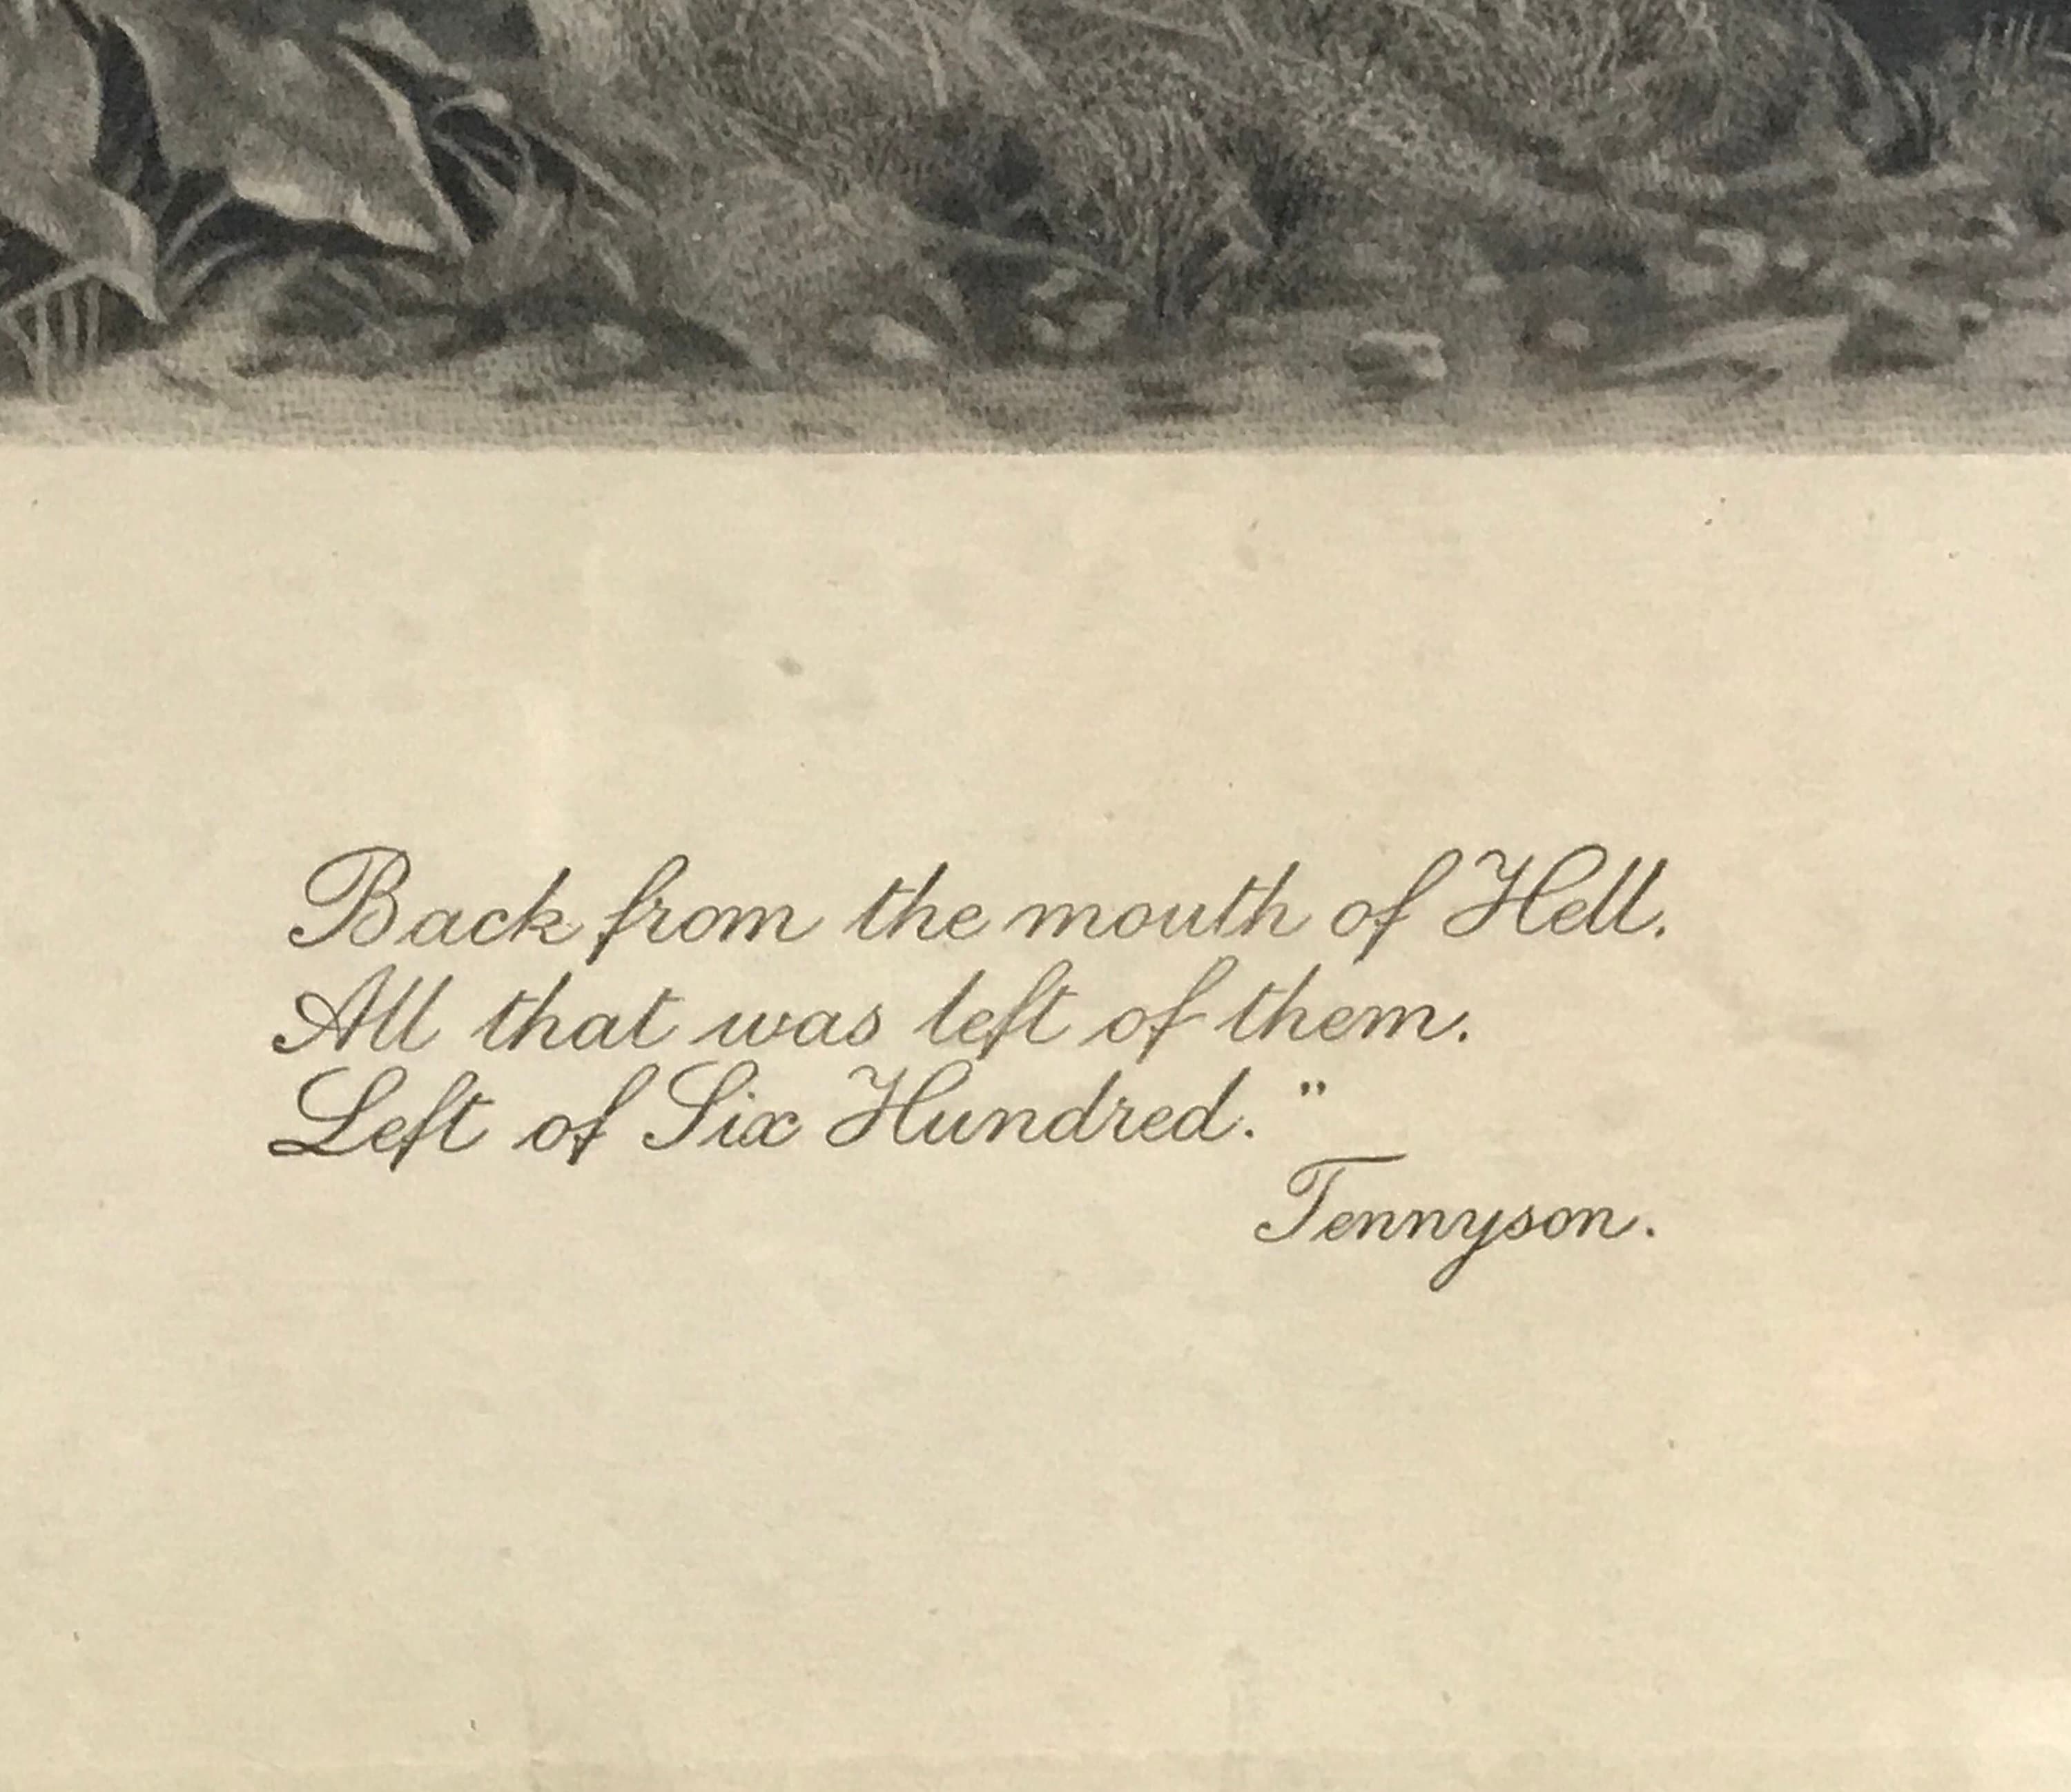 Back from the mouth of Hell.
All that was left of them.
Left of Six Hundred."
Tennyson.